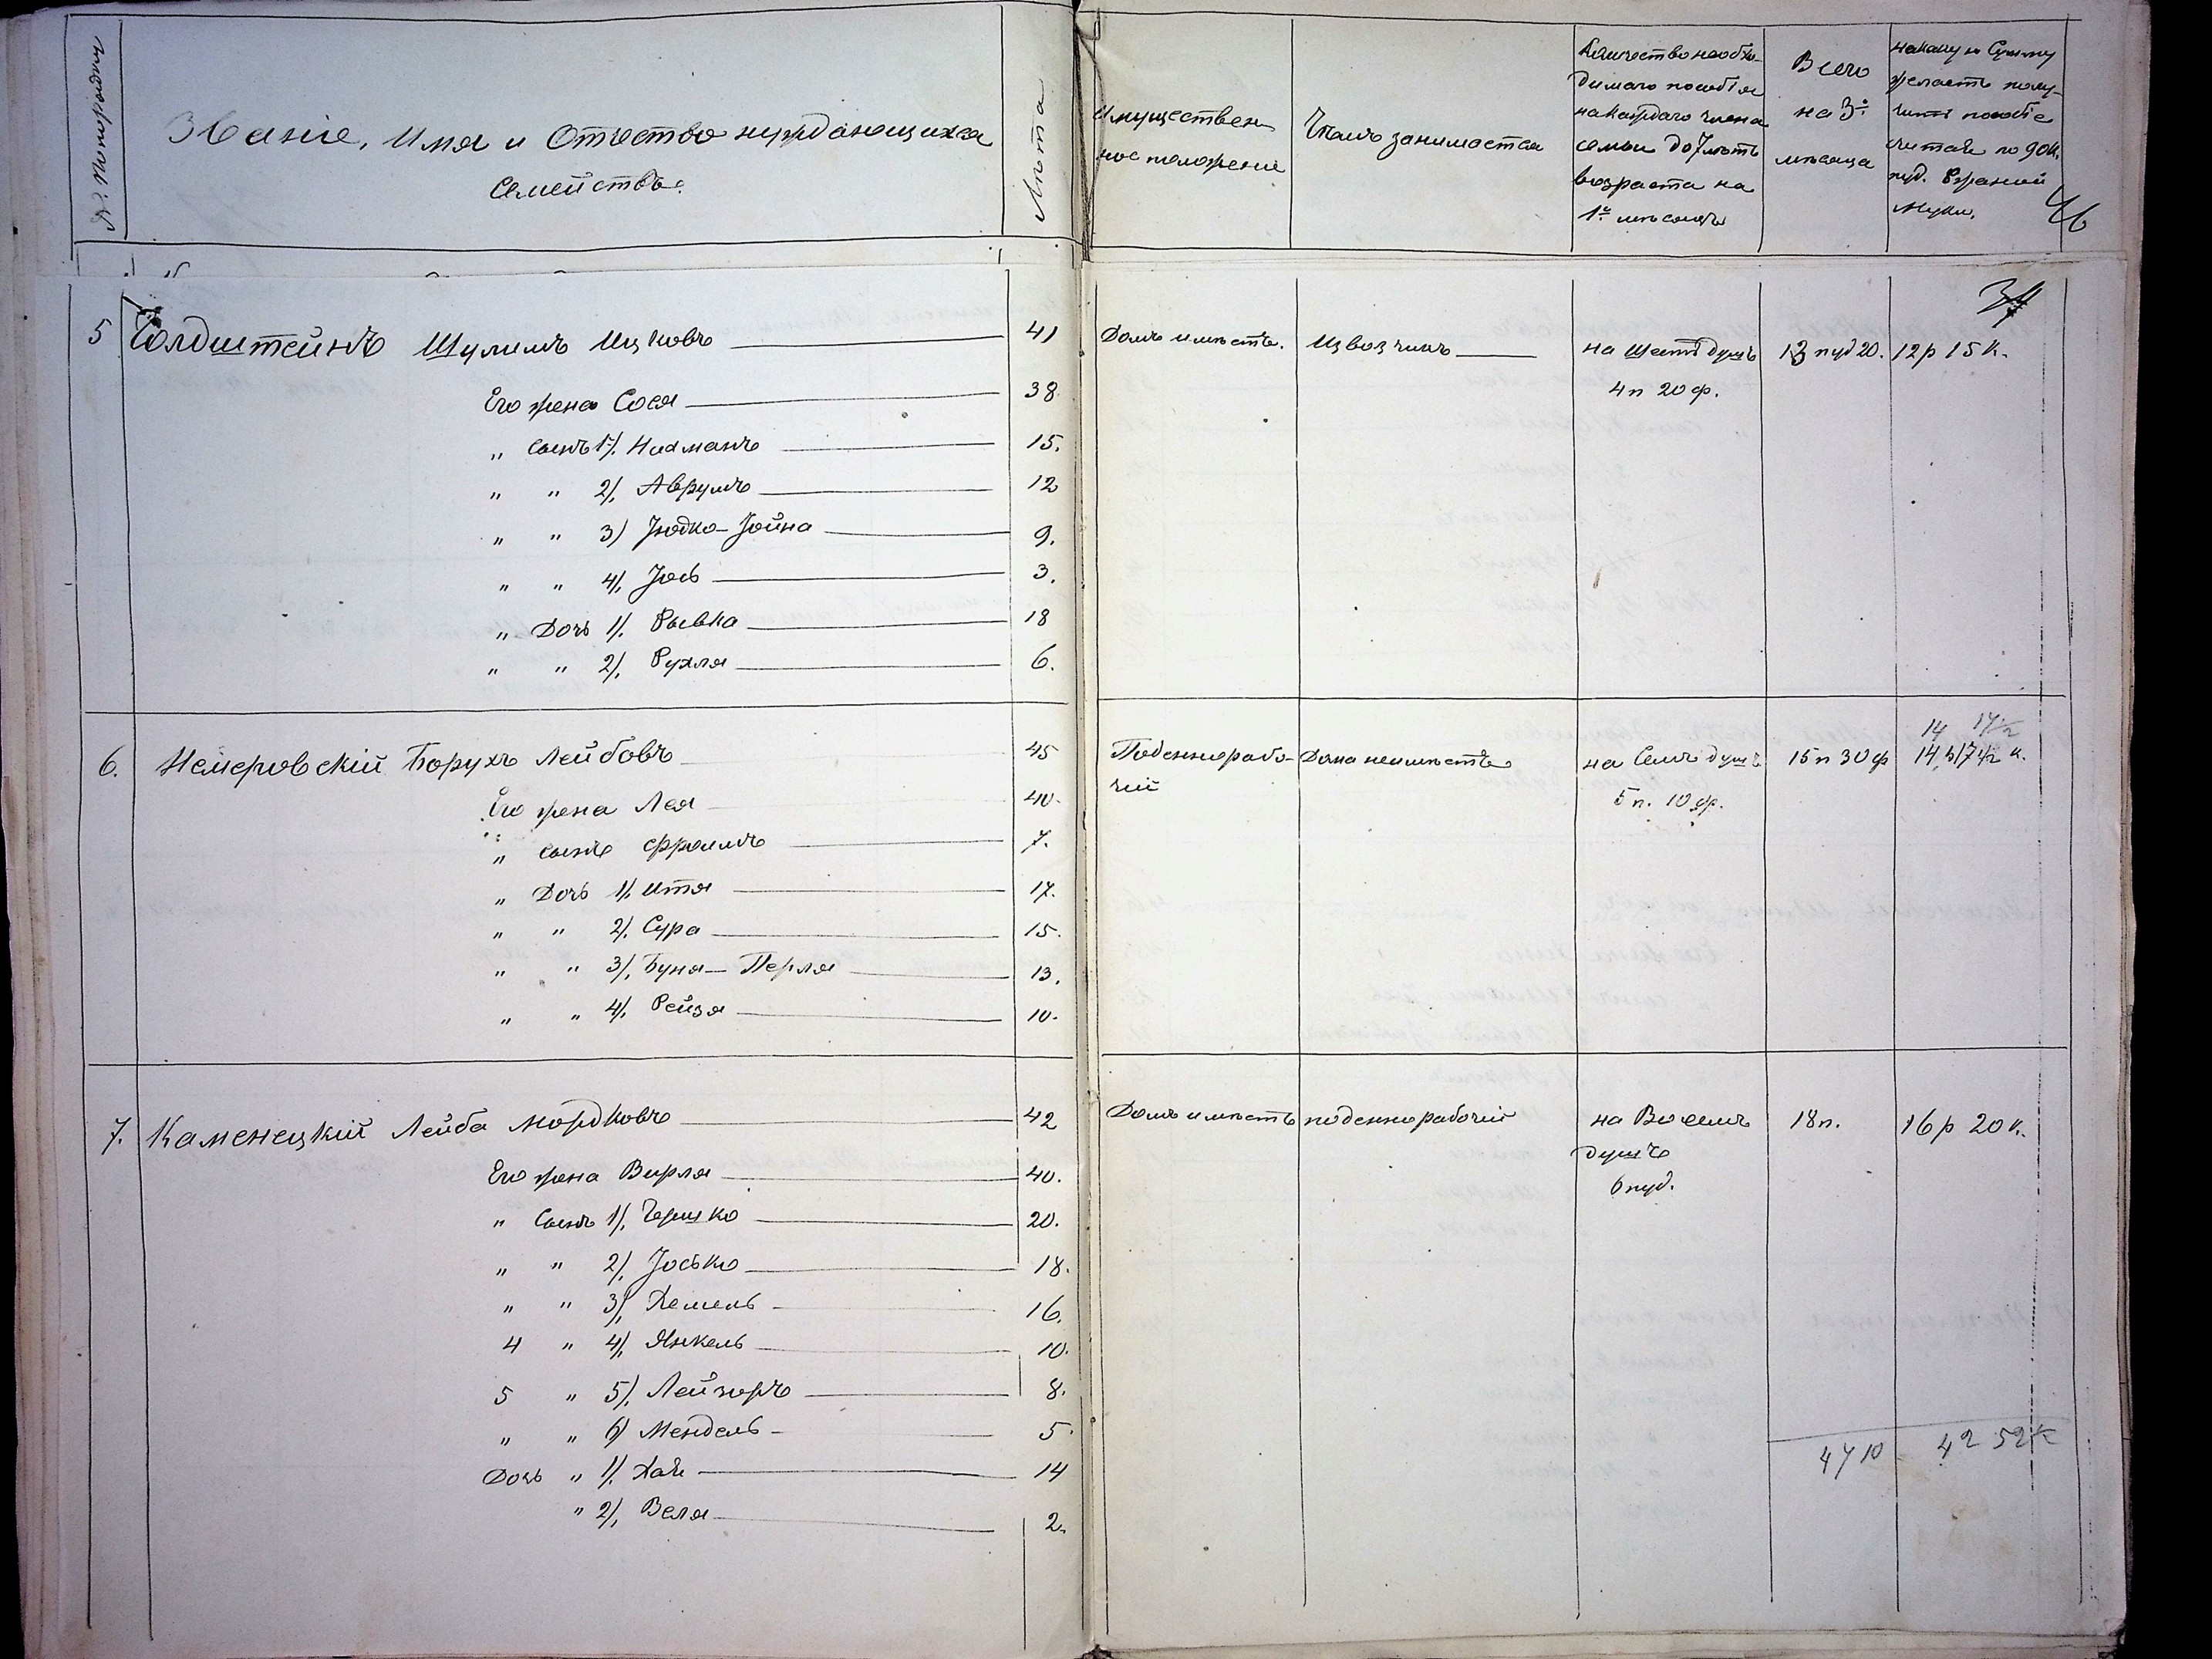 № по порядку
Званіе, Имя и Отчество нуждающихся
Семействъ.
Лѣта
Имуществен
ное положеніе
Чѣмъ занимается
Количество необхо-
димаго пособія
на каждаго члена
семьи до 7 лѣтъ
возраста на
1й мѣсяцъ
Всего
на 3и
мѣсяца
на какую Сумму
желаетъ полу-
чить пособіе
считая по 90 к.
пуд. Ржаной
муки.
46
34
5 Голдштейнъ Шулимъ Ицковъ 41 Домъ имѣетъ. Извозчикъ на Шесть душъ 13 пуд 20. 12 р 15 к.
4 п 20 ф.
Его жена Сося 38
" Сынъ 1/. Нихманъ 15.
" " 2/. Аврумъ 12
" " 3/ Іюдко-Іойна 9.
" " 4/. Іось 3.
" Дочь 1/. Рывка 18
" " 2/. Рухля 6.
14 17½
6. Немеровскій Борухъ Лейбовъ 45 Поденнорабо- Дома неимѣетъ на Семь душъ 15 п 30 ф 14 р 17½ к.
чій 5 п. 10 ф.
Его жена Лея 40.
" сынъ Фроимъ 7.
" Дочь 1/. Итя 17.
" " 2/. Сура 15.
" " 3/. Буня-Перля 13.
" " 4/. Рейзя 10.
7. Каменецкій Лейба Мордковъ 42 Домъ имѣетъ поденнорабочій на Восемь 18 п. 16 р 20 к.
душъ
6 пуд.
Его жена Вирля 40.
" Сынъ 1/. Гершко 20.
" " 2/. Іосько 18.
" " 3/. Хемель 16.
4 " 4/. Янкель 10.
5 " 5/. Лейзоръ 8.
" " 6/ Мендель 5.
Дочь " 1/. Хая 14
" 2/. Веля 2.
47 10 42 52 к